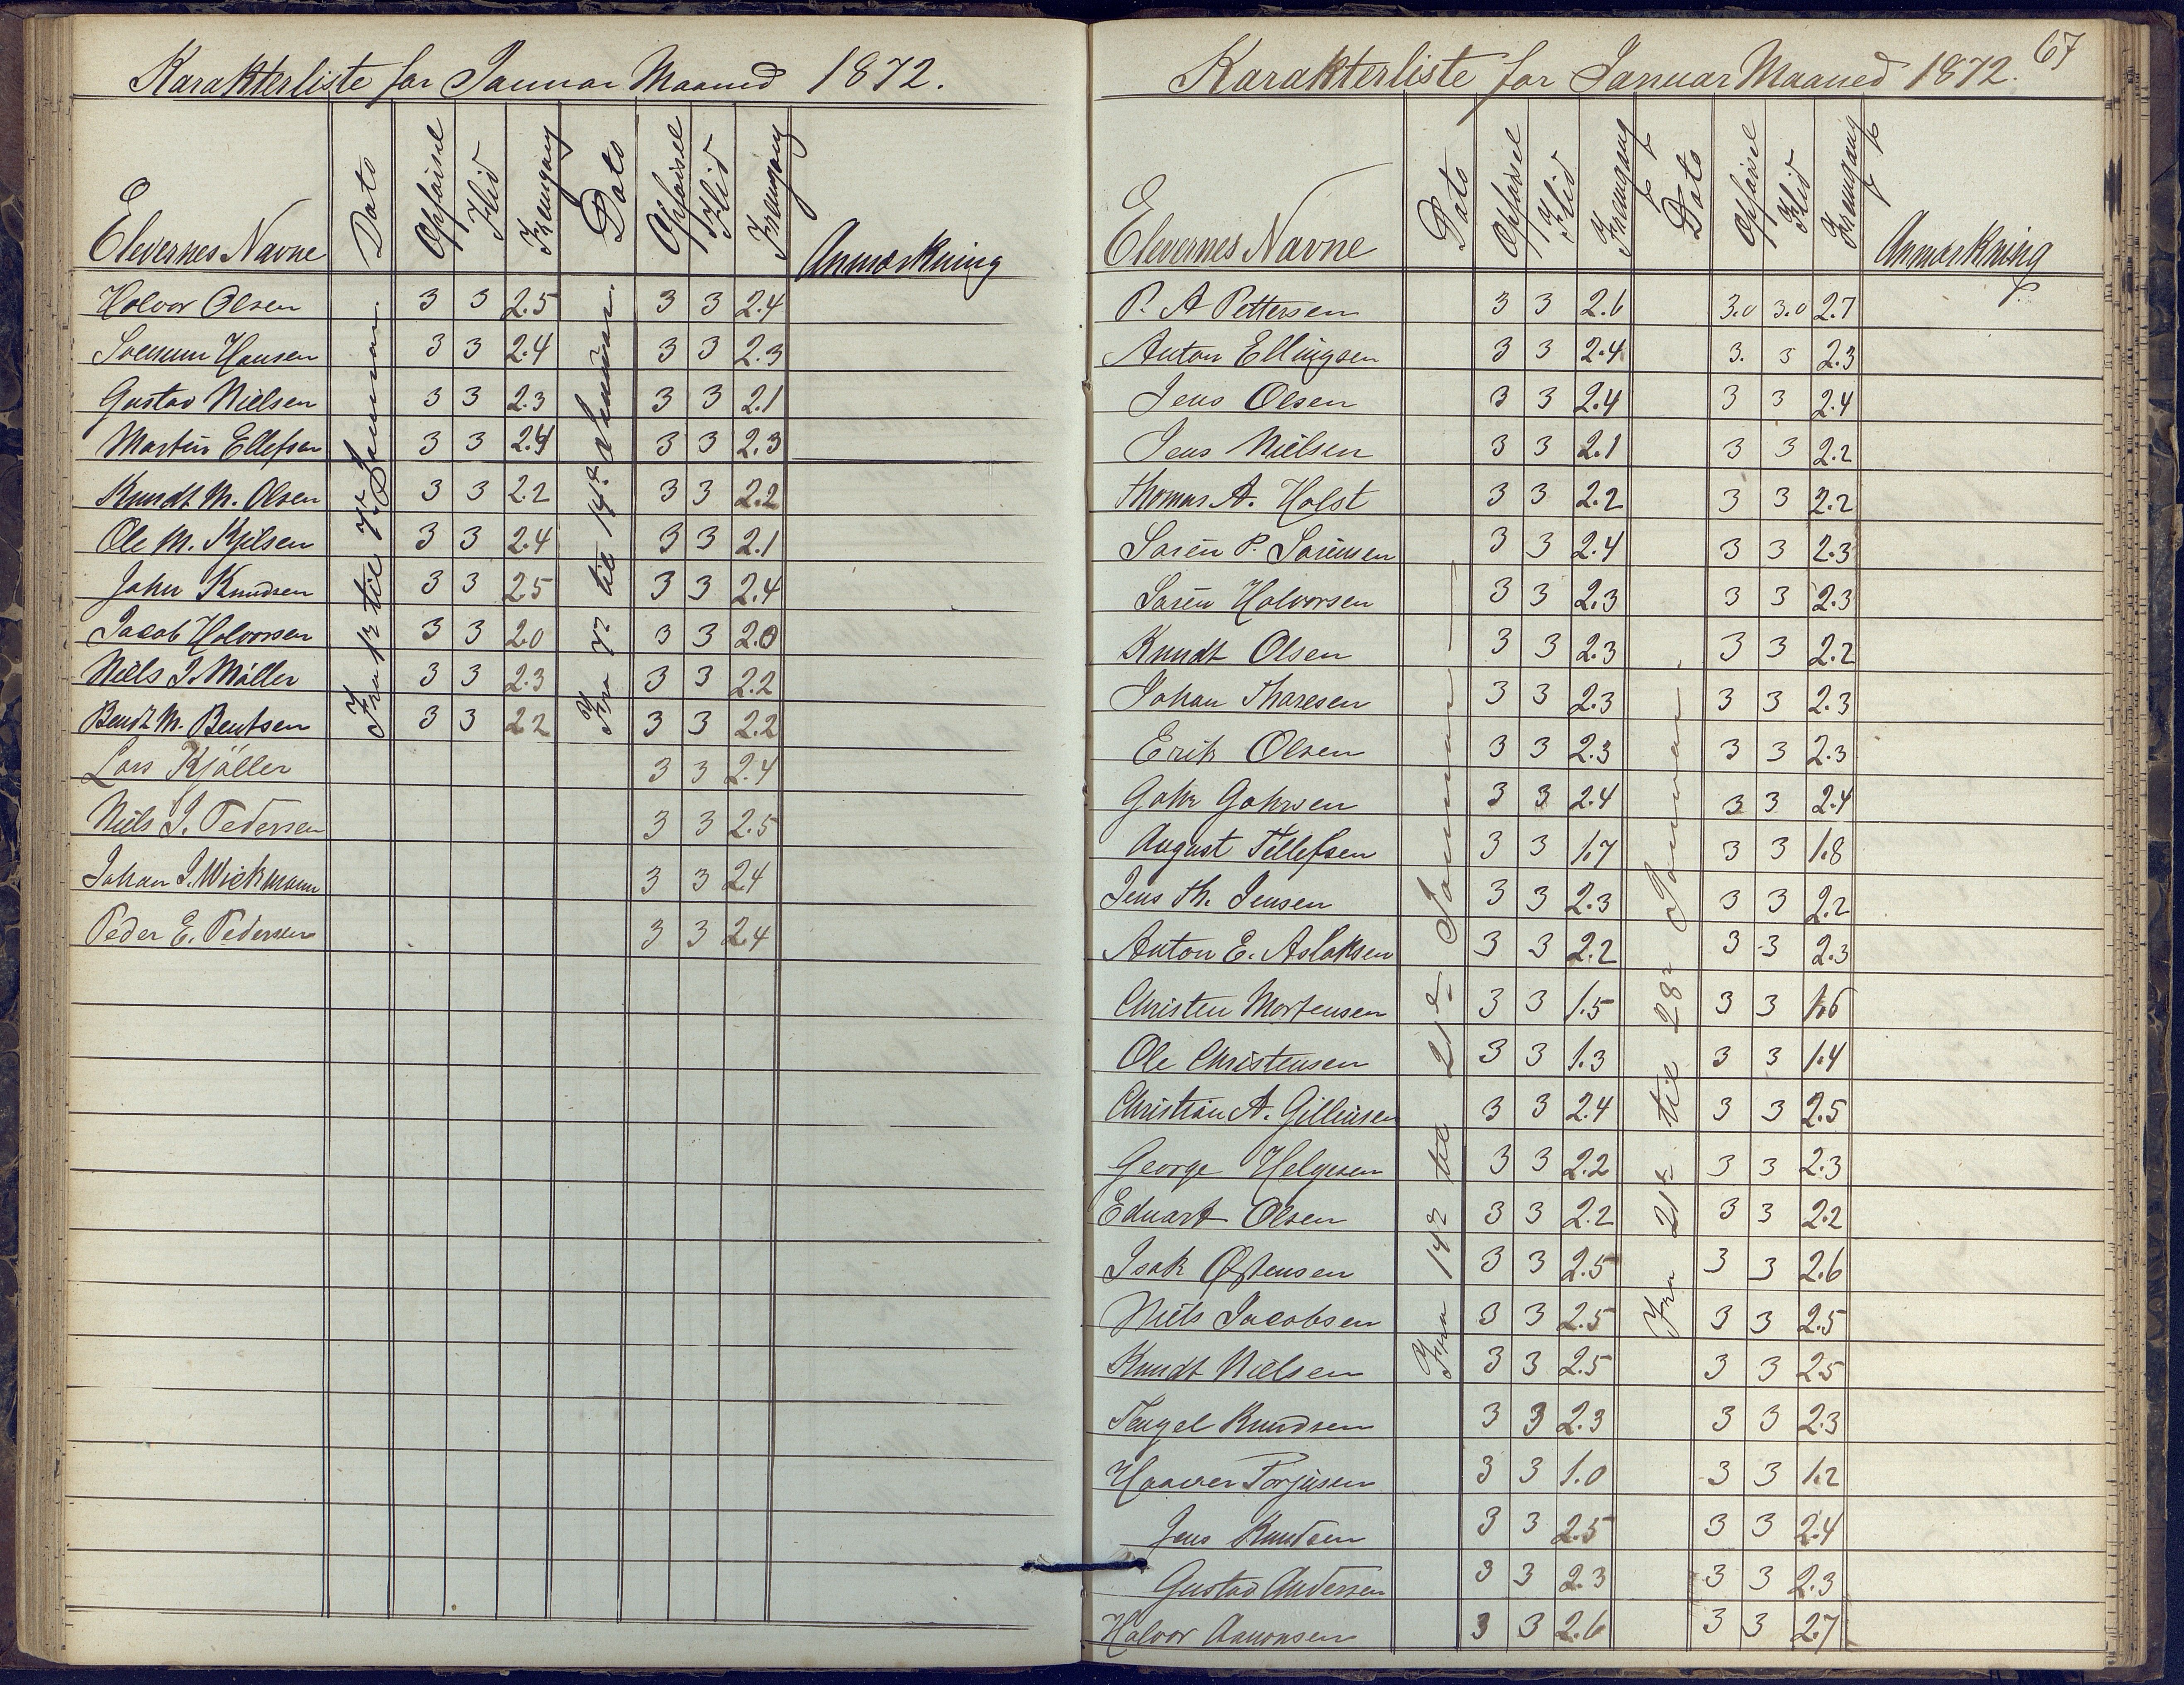 Karakterliste for Januar Maaned 1872.
Elevernes Navne Dato Opførsel Flid Fremgang Dato Opførsel Flid Fremgang Anmærkning
Fra 1ste til 7de Januar.
Fra 7de til 14de Januar.
Halvor Olsen 3 3 2.5 3 3 2.4
Hansen 3 3 2.4 3 3 2.3
Gustav Nielsen 3 3 2.3 3 3 2.1
Martin Ellefsen 3 3 2.4 3 3 2.3
Knudt M. Olsen 3 3 2.2 3 3 2.2
Ole M. Kjilsen 3 3 2.4 3 3 2.1
John Knudsen 3 3 2.5 3 3 2.4
Jacob Halvorsen 3 3 2.0 3 3 2.0
Niels J. Møller 3 3 2.3 3 3 2.2
Bendt M. Bentsen 3 3 2.2 3 3 2.2
Lars Kjøller 3 3 2.4
Niels J. Pedersen 3 3 2.5
Johan J. Wickmann 3 3 2.4
Peder E. Pedersen 3 3 2.4
67
Karakterliste for Januar Maaned 1872.
Elevernes Navne Dato Opførsel Flid Fremgang Dato Opførsel Flid Fremgang Anmærkning
Fra 14de til 21de Januar
Fra 21de til 28de Januar.
P. A Pettersen 3 3 2.6 3.0 3.0 2.7
Anton Ellingsen 3 3 2.4 3. 3 2.3
Jens Olsen 3 3 2.4 3 3 2.4
Jens Nielsen 3 3 2.1 3 3 2.2
Thomas A. Holst 3 3 2.2 3 3 2.2
Søren P. Sørensen 3 3 2.4 3 3 2.3
Søren Halvorsen 3 3 2.3 3 3 2.3
Knudt Olsen 3 3 2.3 3 3 2.2
Johan Tharesen 3 3 2.3 3 3 2.3
Erik Olsen 3 3 2.3 3 3 2.3
3 3 2.4 3 3 2.4
August Tellefsen 3 3 1.7 3 3 1.8
Jens Th. Jensen 3 3 2.3 3 3 2.2
Anton E. Aslaksen 3 3 2.2 3 3 2.3
Christen Mortensen 3 3 1.5 3 3 1.6
Ole Christensen 3 3 1.3 3 3 1.4
Christian A. Gillinsen 3 3 2.4 3 3 2.5
George Helgesen 3 3 2.2 3 3 2.3
Eduart Olsen 3 3 2.2 3 3 2.2
Isak Østensen 3 3 2.5 3 3 2.6
Niels Jacobsen 3 3 2.5 3 3 2.5
Knudt Nielsen 3 3 2.5 3 3 2.5
Tengel Knudsen 3 3 2.3 3 3 2.3
Haaver Torjusen 3 3 1.0 3 3 1.2
Jens Knudsen 3 3 2.5 3 3 2.4
Gustav Andersen 3 3 2.3 3 3 2.3
Halvor Aanonsen 3 3 2.6 3 3 2.7